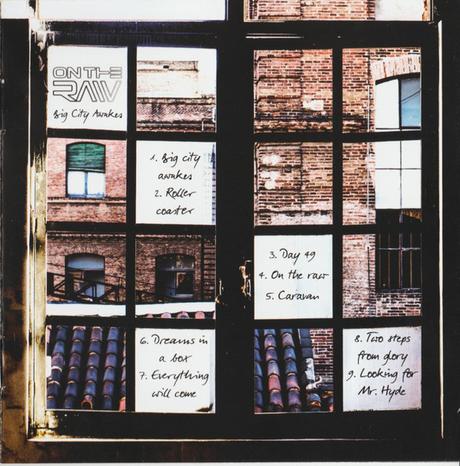 ON THE
RAW
Big City Awakes
1. Big city
awakes
2. Roller
coaster
3. Day 49
4. On the raw
5. Caravan
6. Dreams in
a box
7. Everything
will come
8. Two steps
from glory
9. Looking for
Mr. Hyde